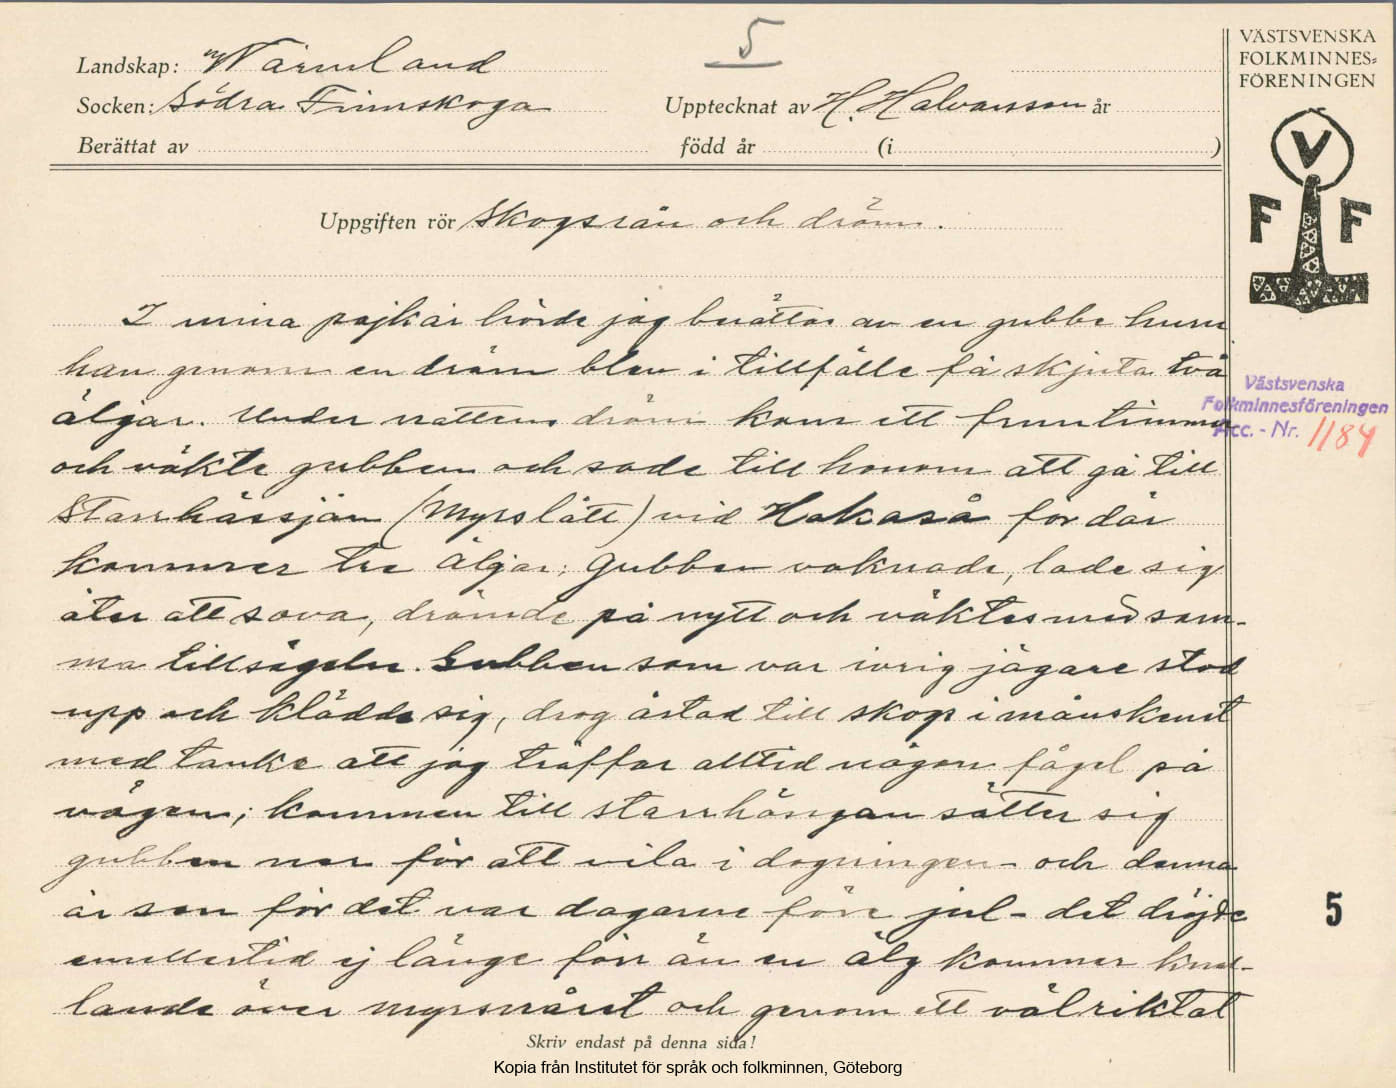 5
VÄSTSVENSKA
FOLKMINNES-
FÖRENINGEN
Landskap: Wärmland
Socken: Södra Finnskoga
Upptecknat av H. Halvarsson år
Berättat av
född år (i )
V
F F
Uppgiften rör Skogsrån och dröm.
I mina pojkår hörde jag berättas av en gubbe huru
han genom en dröm blev i tillfälle få skjuta två
älgar. Under nattens dröm kom ett fruntimmer
och väkte gubben och sade till honom att gå till
Starrhässjan (Myrslått) vid Hakaså för där
kommer tre älgar; gubben vaknade, lade sig
åter att sova, drömde på nytt och väktes med sam-
ma tillsägelse. Gubben som var ivrig jägare stod
upp och klädde sig, drog åstad till skogs i månskenet
med tanke att jag träffar alltid någon fågel på
vägen; kommen till starrhässjan sätter sig
gubben ner för att vila i dagningen – och denna
är sen för det var dagarne före jul – det dröjde
emellertid ej länge förr än en älg kommer knal-
lande över myrsnåret och genom ett välriktat
Västsvenska
Folkminnesföreningen
Acc. - Nr. 1184
5
Skriv endast på denna sida!
Kopia från Institutet för språk och folkminnen, Göteborg